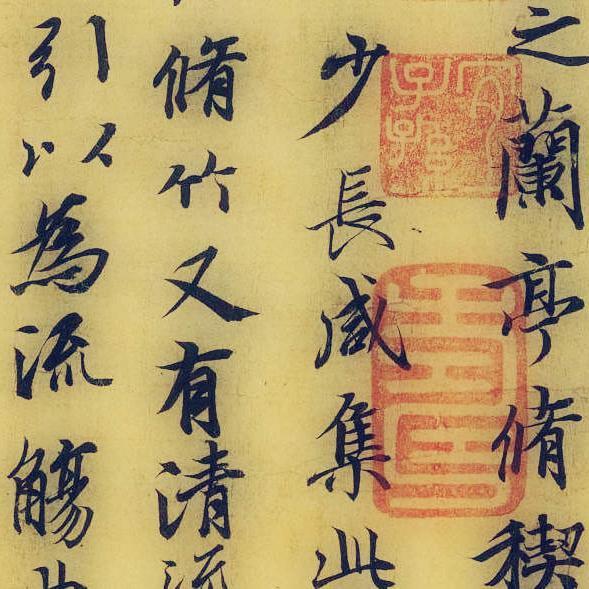 之蘭亭脩稧
少長咸集此
脩竹又有清流
引以為流觴曲